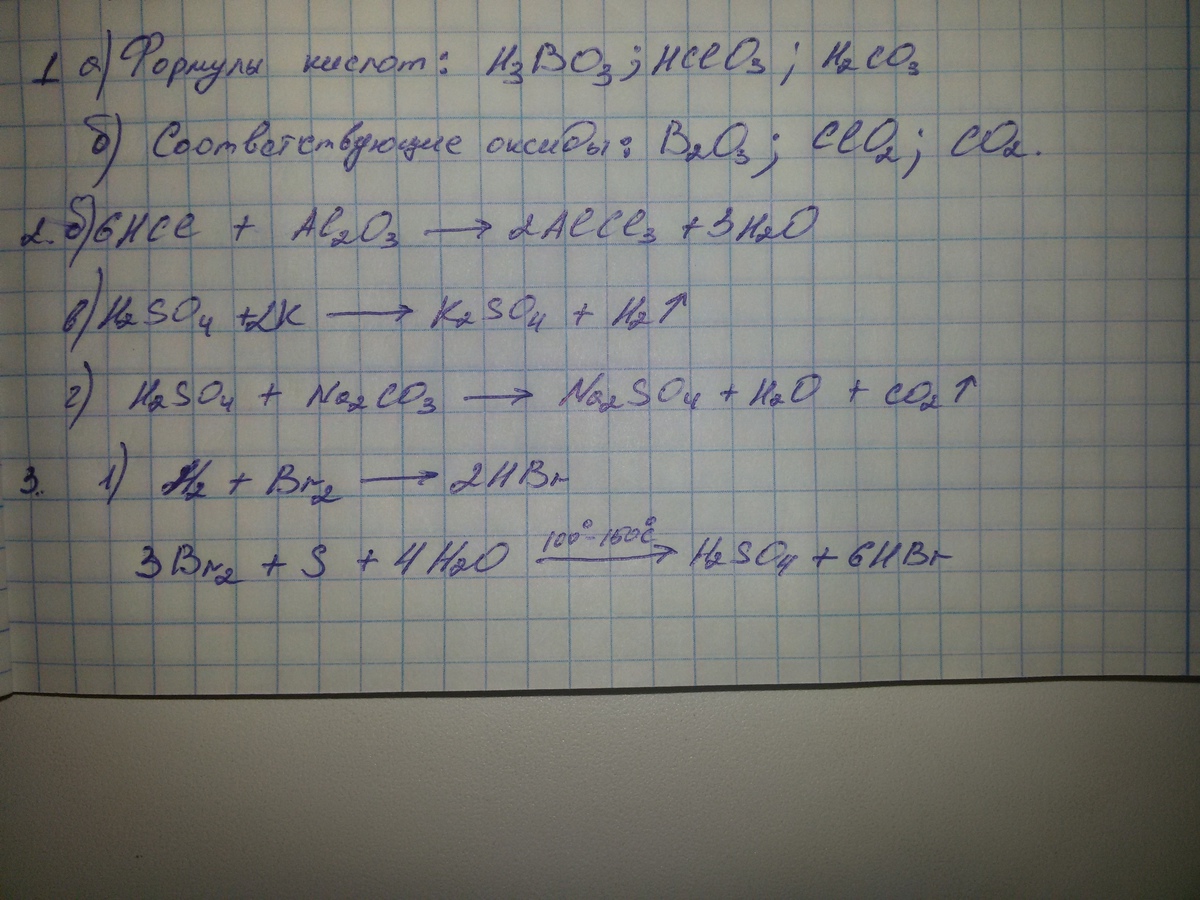 1 а) Формулы кислот: H₃BO₃; HClO₃; H₂CO₃
б) Соответствующие оксиды: B₂O₃; ClO₂; CO₂.
2. б) 6HCl + Al₂O₃ → 2AlCl₃ + 3H₂O
в) H₂SO₄ + 2K → K₂SO₄ + H₂↑
г) H₂SO₄ + Na₂CO₃ → Na₂SO₄ + H₂O + CO₂↑
3. 1) H₂ + Br₂ → 2HBr
3Br₂ + S + 4H₂O 100°-150°C → H₂SO₄ + 6HBr